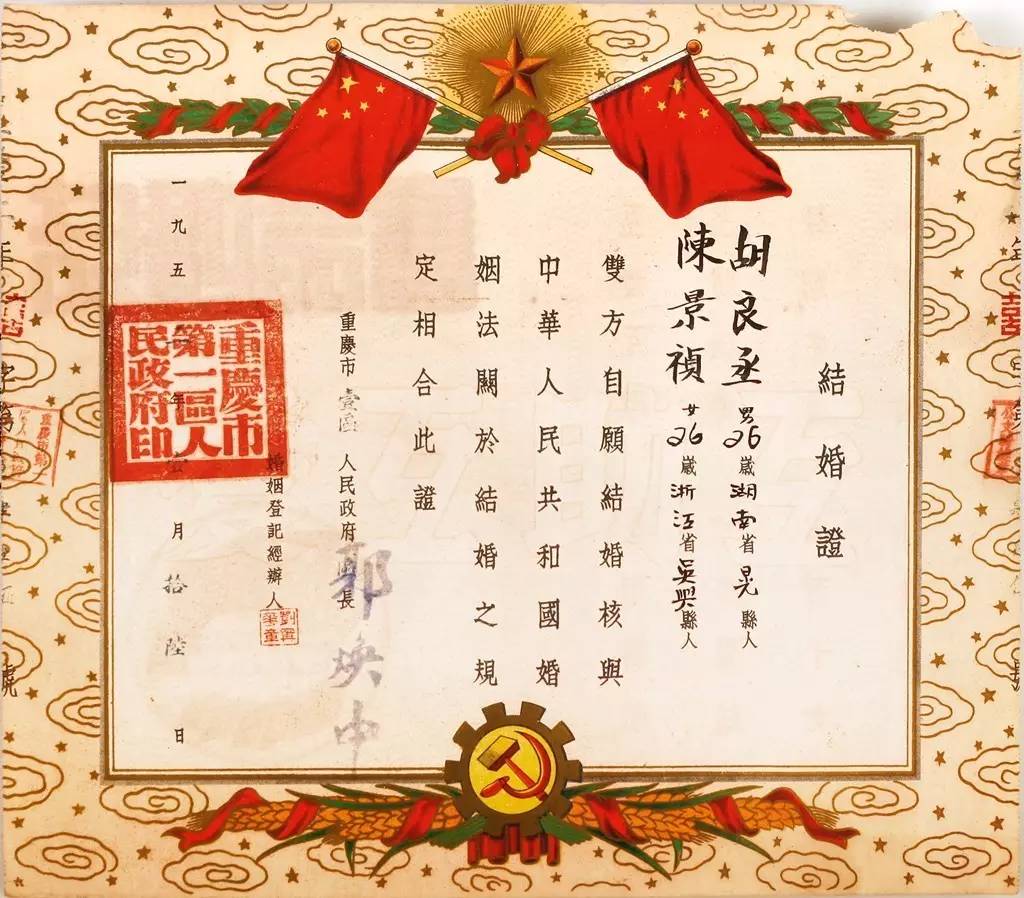 結婚證
胡良丞 男 26歲 湖南省晃縣人
陳景禎 女 26歲 浙江省吳興縣人
雙方自願結婚核與
中華人民共和國婚
姻法關於結婚之規
定相合此證
重慶市壹區人民政府區長 郭煥中
婚姻登記經辦人
一九五一年壹月拾陸日
重慶市
第一區人
民政府印